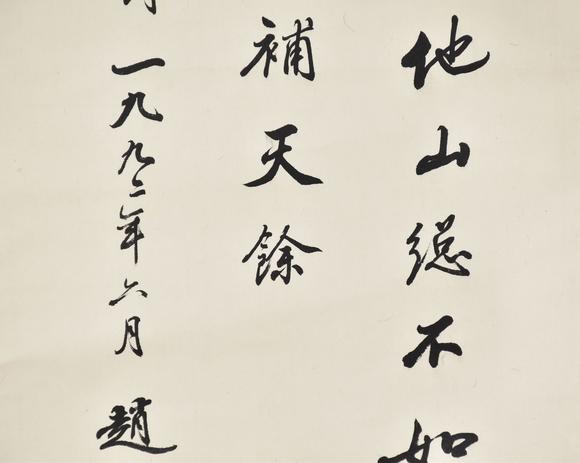 他山總不如
補天餘
一九九二年六月 趙